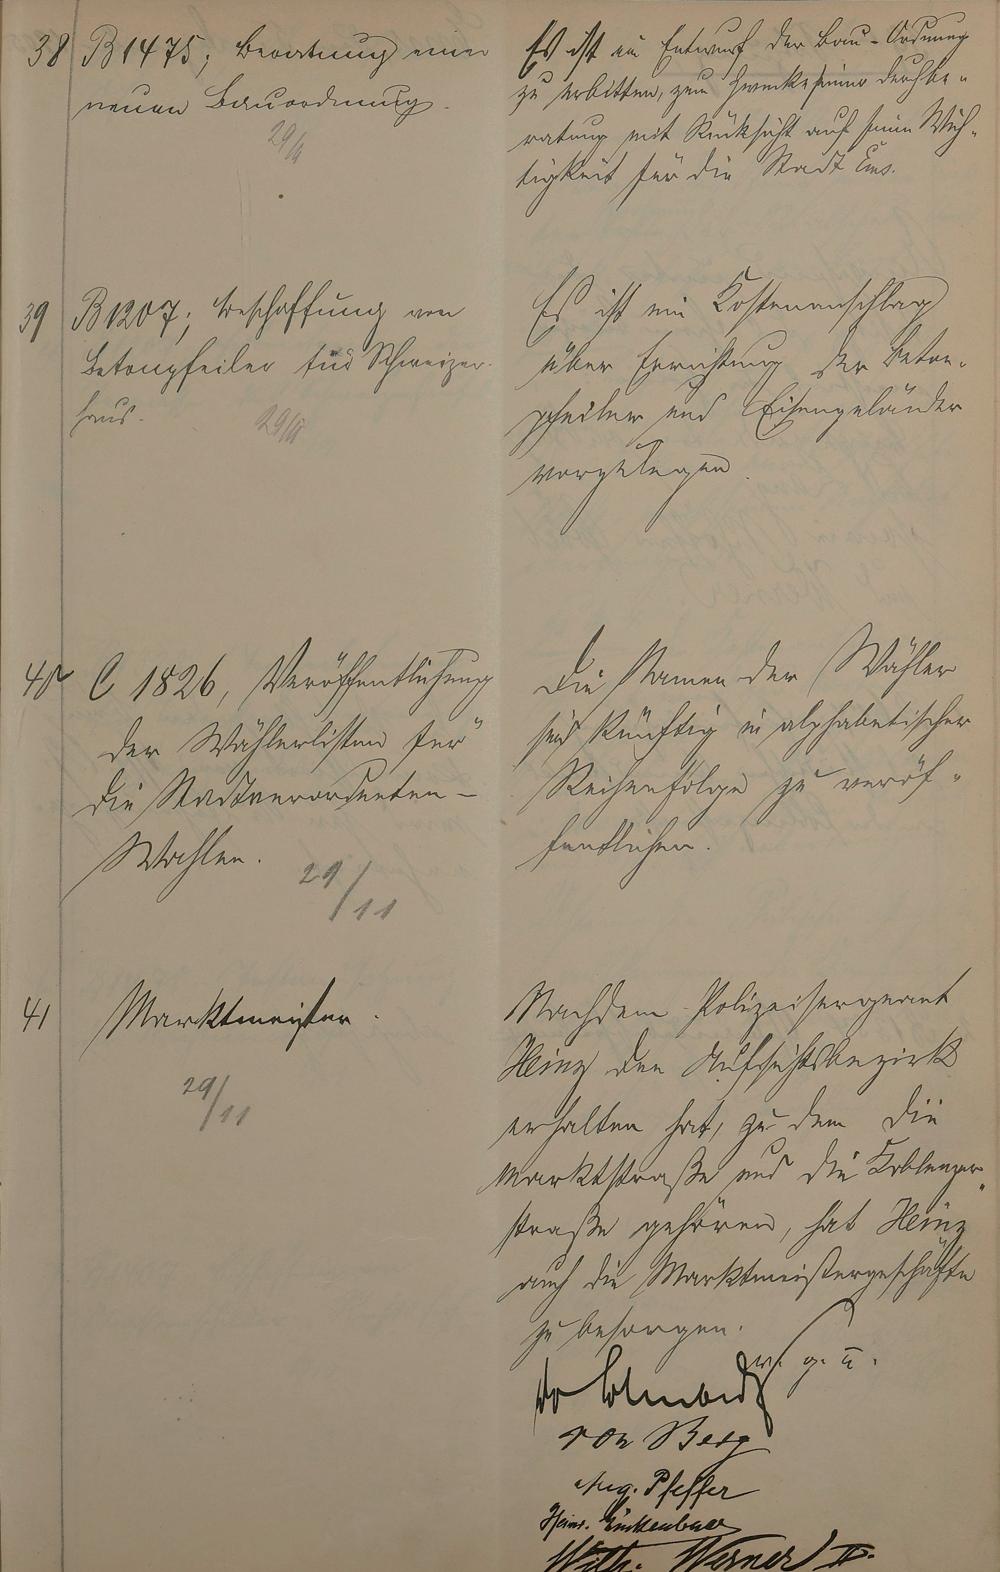 38 B 1475; Beratung einer
neuen Bauordnung.
29/11
Es ist ein Entwurf der Bau-Ordnung
zu erbitten, zum Zwecke seiner Durchbe-
ratung mit Rücksicht auf seine Wich-
tigkeit für die Stadt Ems.
39 B 1207; Beschaffung von
Betonpfeiler für Schweizer-
haus.
29/11
Es ist ein Kostenanschlag
über Errichtung der Beton-
pfeiler und Eisengeländer
vorzulegen.
40 C 1826, Veröffentlichung
der Wählerlisten für
die Stadtverordneten-
Wahlen.
29/11
Die Namen der Wähler
sind künftig in alphabetischer
Reihenfolge zu veröf-
fentlichen.
41 Marktmeister.
29/11
Nachdem Polizeisergeant
Heinz den Aufsichtsbezirk
erhalten hat, zu dem die
Marktstraße und die Koblenzer-
straße gehören, hat Heinz
auch die Marktmeistergeschäfte
zu besorgen.
v. g. u.
von Berg
Aug. Pfeffer
Heinr.
Wilh. Werner II.